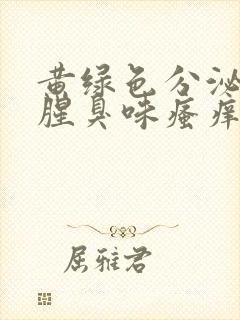 黄绿色分泌
腥臭味瘙痒
屈雅君